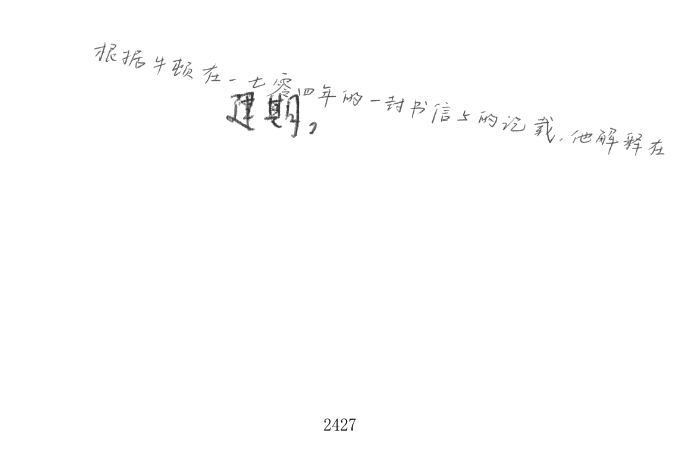 根据牛顿在一七零四年的一封书信上的记载，他解释在
建期，
2427